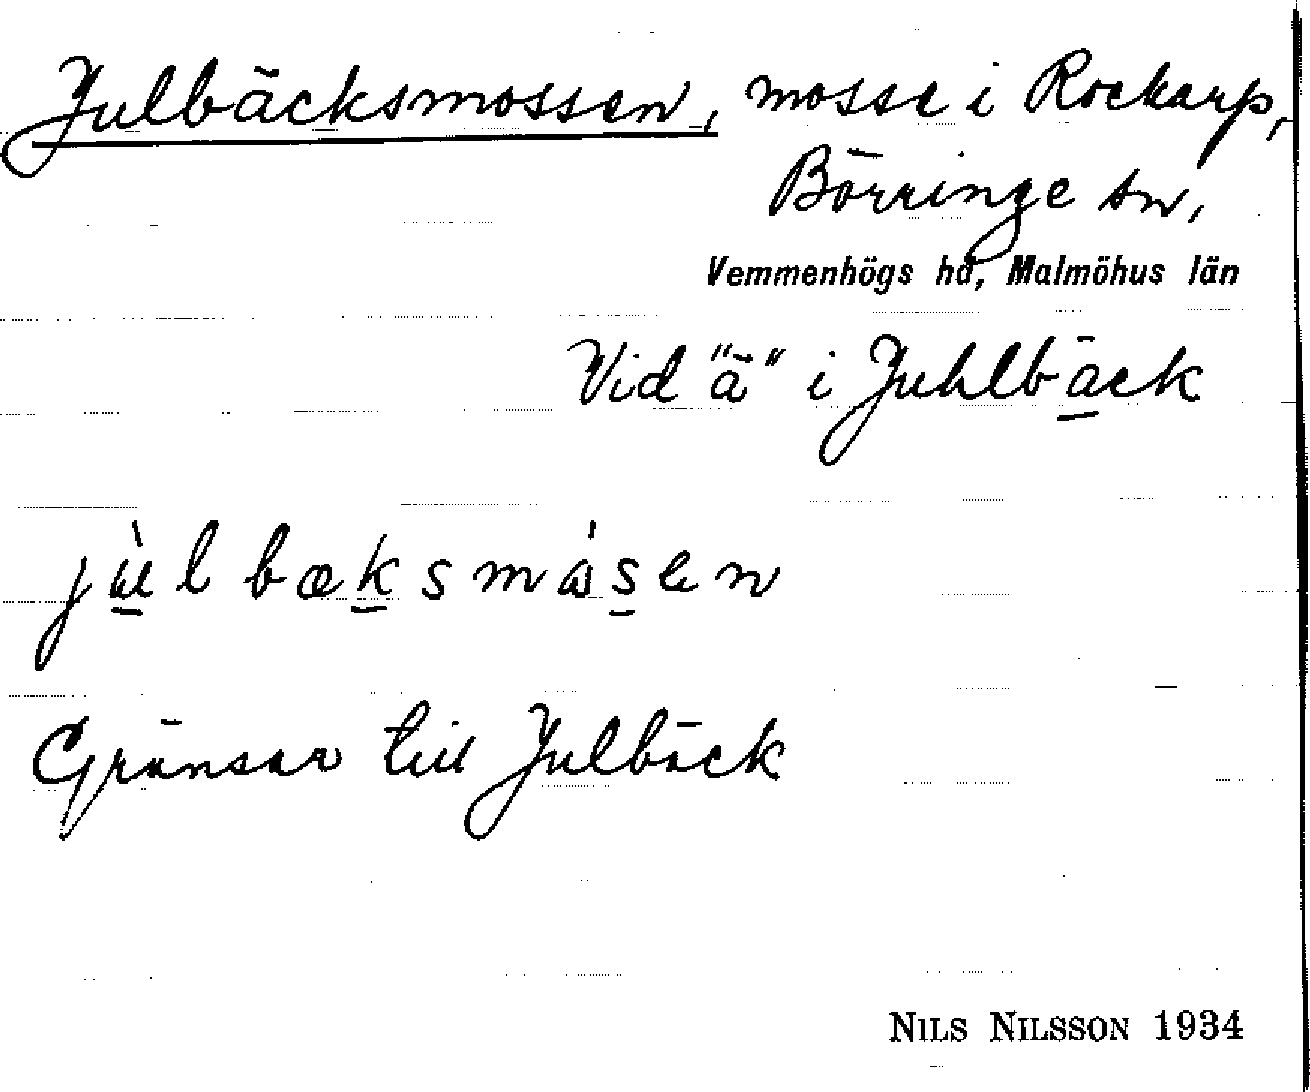 Julbäcksmossen, mosse i Rockarp,
Börringe sn,
Vemmenhögs hd, Malmöhus län
Vid "ä" i Juhlbäck
jùlbæksmåsen
Gränsar till Julbäck
NILS NILSSON 1934